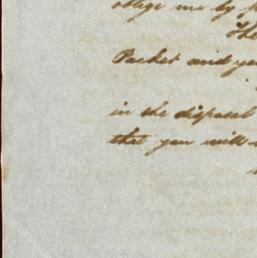 oblige me by
The
Packet and
in the disposal
that you will